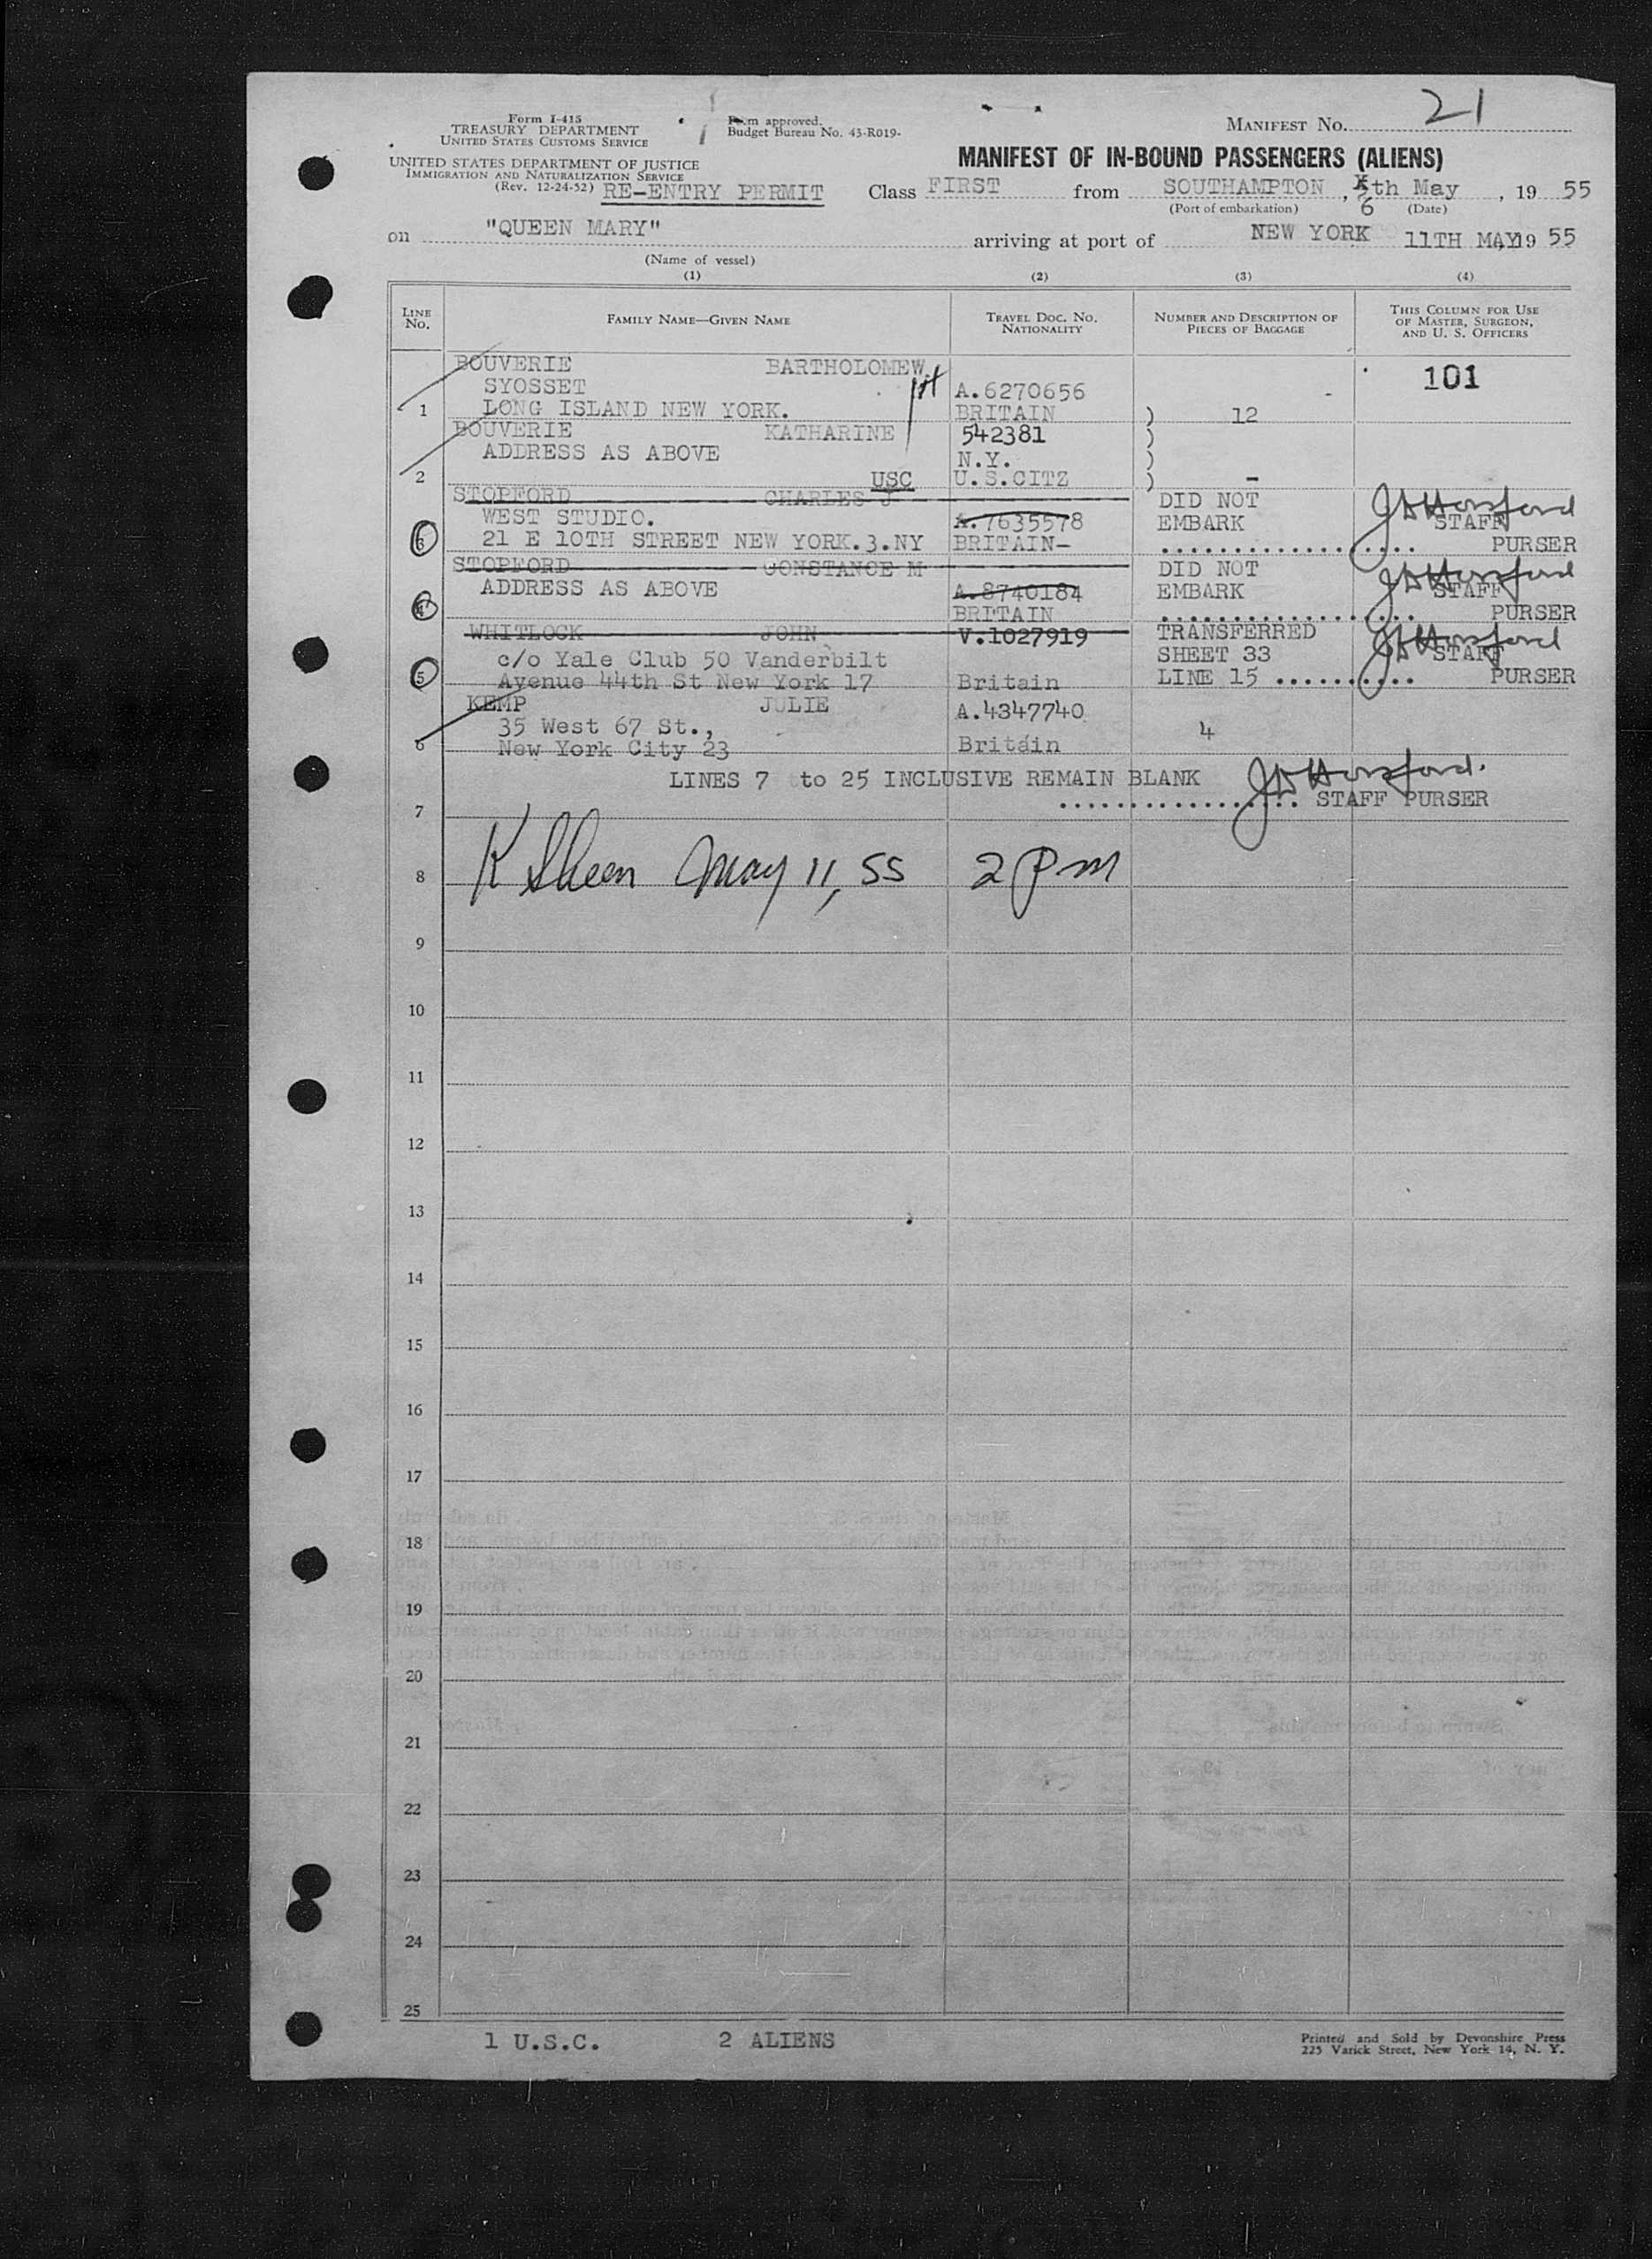 Form I-415
TREASURY DEPARTMENT
UNITED STATES CUSTOMS SERVICE
UNITED STATES DEPARTMENT OF JUSTICE
IMMIGRATION AND NATURALIZATION SERVICE
(Rev. 12-24-52) RE-ENTRY PERMIT
Form approved.
Budget Bureau No. 43-R019-
MANIFEST No. 21
MANIFEST OF IN-BOUND PASSENGERS (ALIENS)
Class FIRST from SOUTHAMPTON, 6 th May, 19 55
(Port of embarkation) (Date)
on "QUEEN MARY" arriving at port of NEW YORK 11TH MAY 19 55
(Name of vessel)
(1) (2) (3) (4)
LINE No. FAMILY NAME—GIVEN NAME TRAVEL DOC. NO. NATIONALITY NUMBER AND DESCRIPTION OF PIECES OF BAGGAGE THIS COLUMN FOR USE OF MASTER, SURGEON, AND U. S. OFFICERS
BOUVERIE BARTHOLOMEW. 101
SYOSSET 1st A.6270656
1 LONG ISLAND NEW YORK. BRITAIN ) 12
BOUVERIE KATHARINE 542381 )
ADDRESS AS ABOVE N.Y. )
2 USC U.S.CITZ ) -
STOPFORD CHARLES J DID NOT
WEST STUDIO. A.7635578 EMBARK STAFF
3 21 E 10TH STREET NEW YORK.3.NY BRITAIN- PURSER
STOPFORD CONSTANCE M DID NOT
ADDRESS AS ABOVE A.8740184 EMBARK STAFF
4 BRITAIN PURSER
WHITLOCK JOHN V.1027919 TRANSFERRED
c/o Yale Club 50 Vanderbilt SHEET 33 STAFF
5 Avenue 44th St New York 17 Britain LINE 15 PURSER
KEMP JULIE A.4347740
35 West 67 St., 4
6 New York City 23 Britain
LINES 7 to 25 INCLUSIVE REMAIN BLANK
STAFF PURSER
7
8 K Sheen May 11, 55 2 pm
9
10
11
12
13
14
15
16
17
18
19
20
21
22
23
24
25
1 U.S.C. 2 ALIENS
Printed and Sold by Devonshire Press
225 Varick Street, New York 14, N. Y.